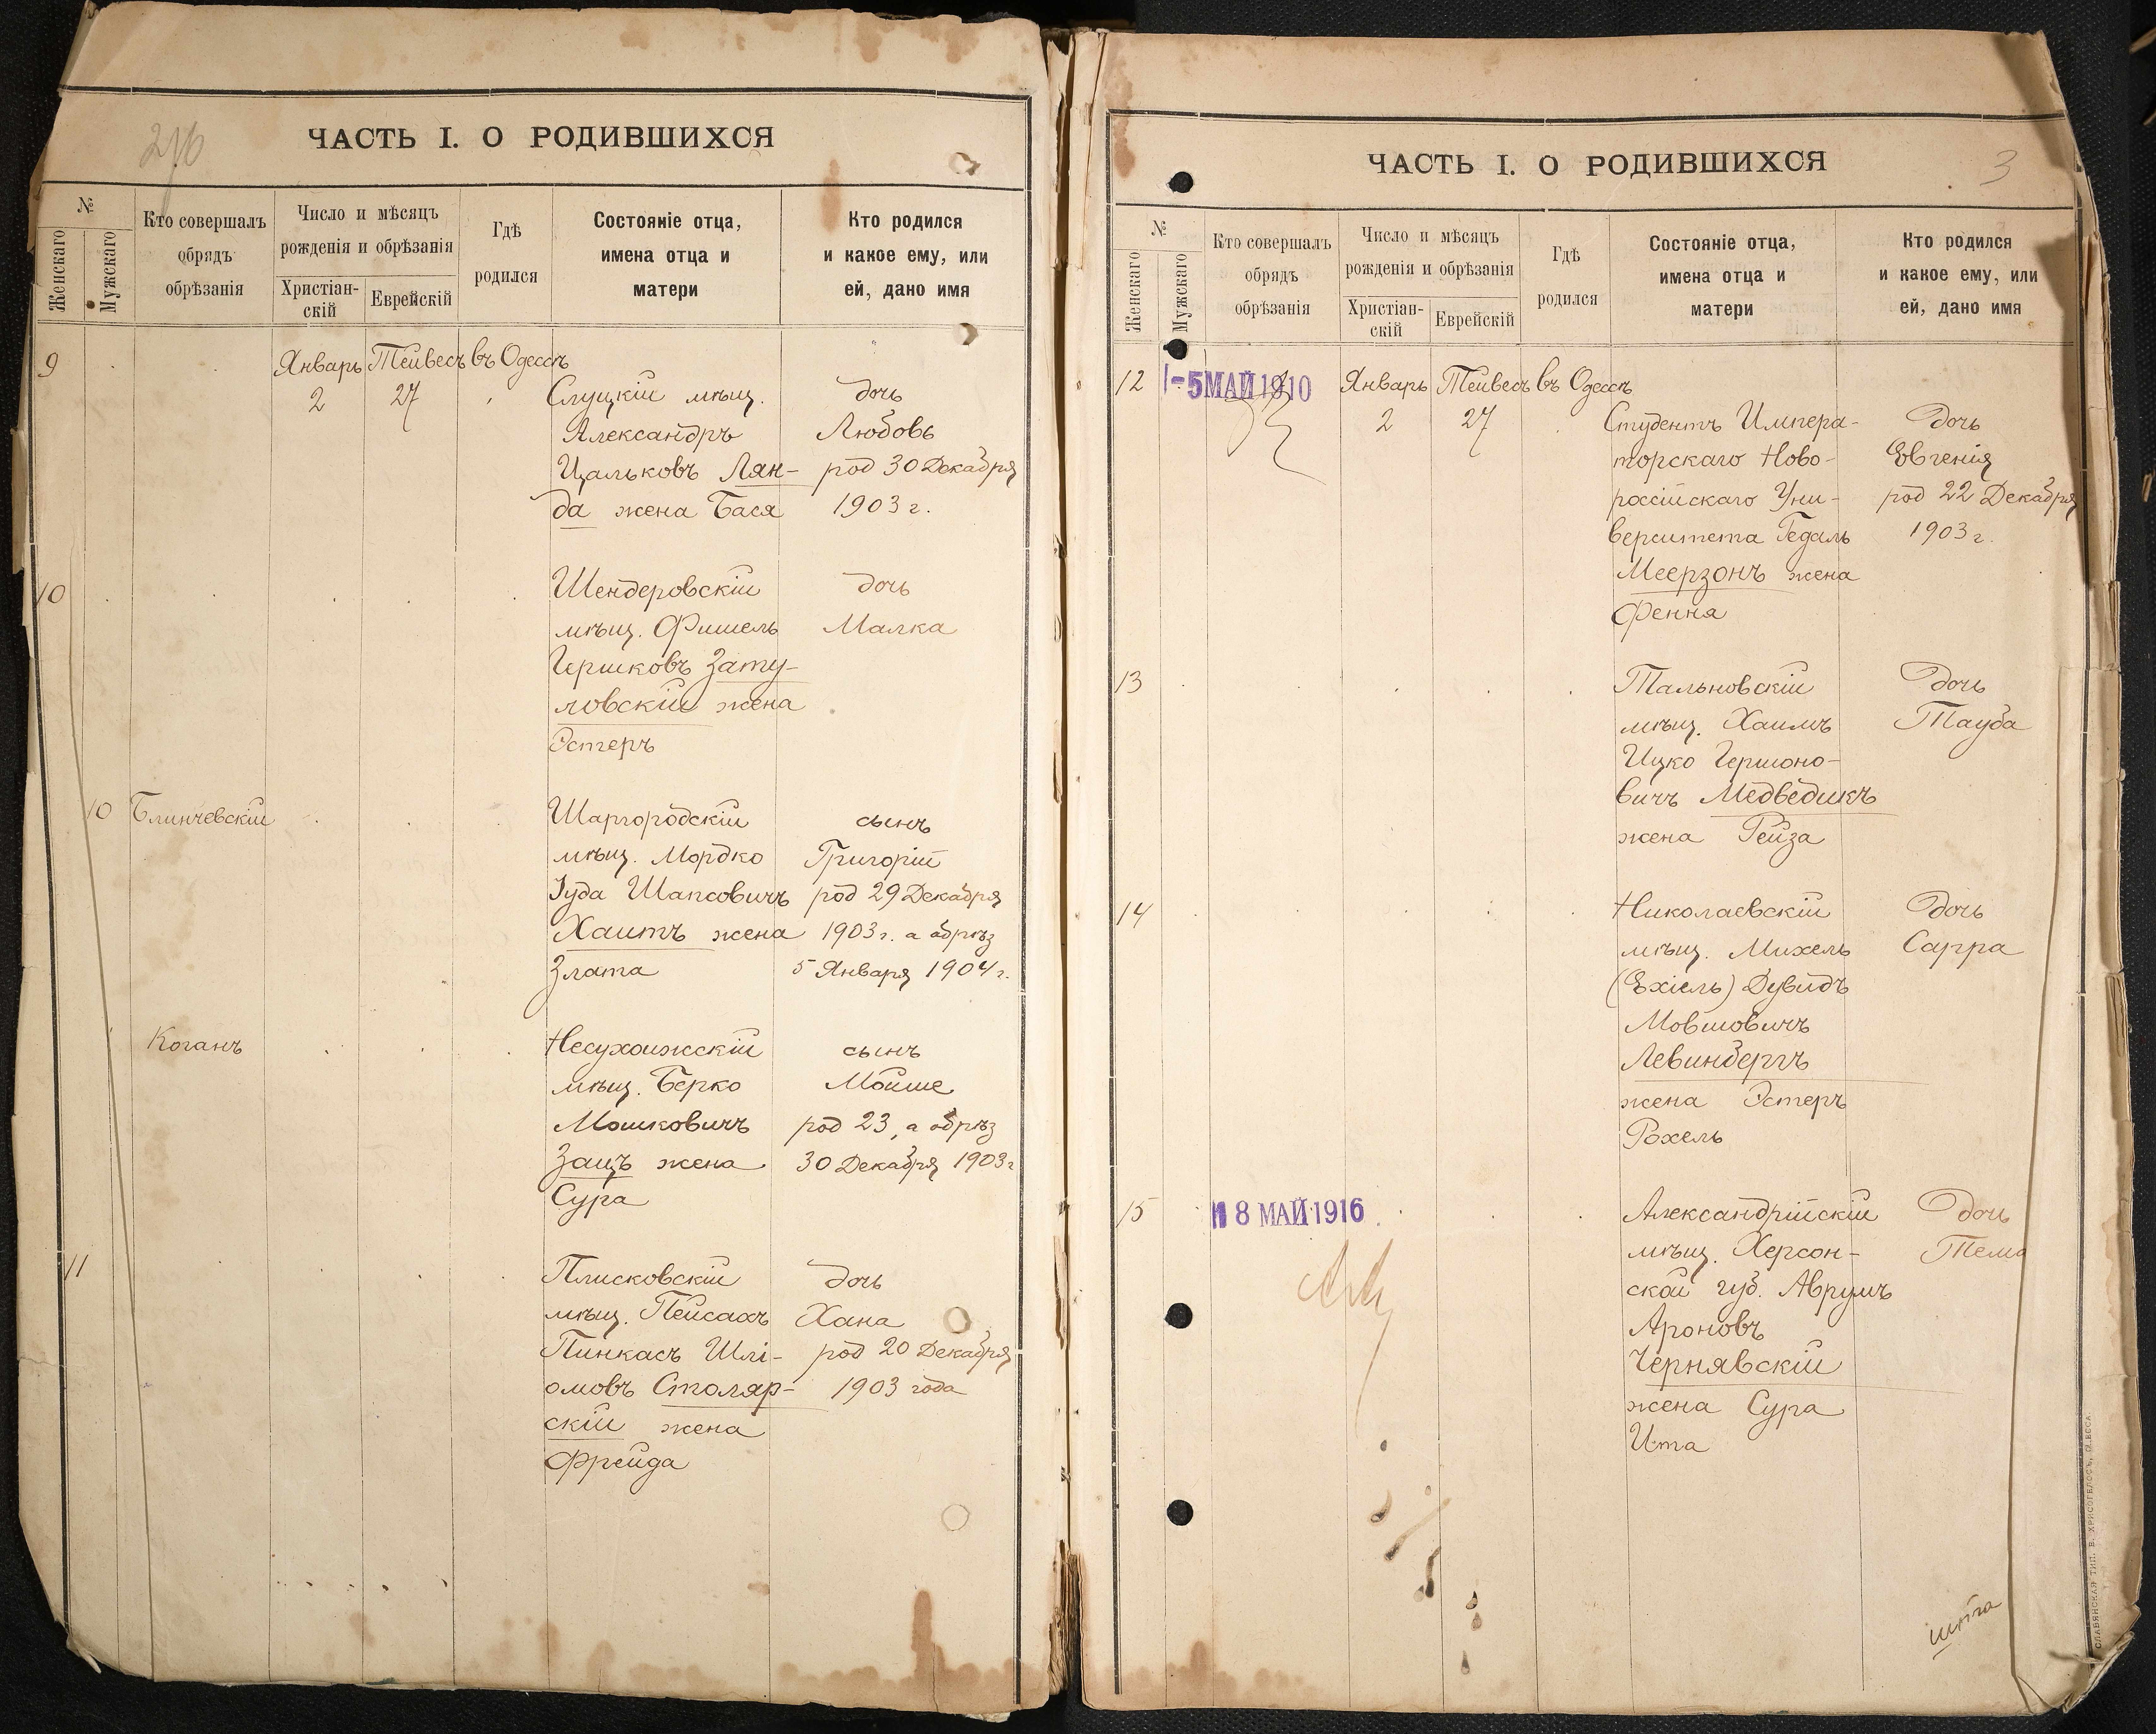 276
ЧАСТЬ I. О РОДИВШИХСЯ
№
Женскаго
Мужскаго
Кто совершалъ
обрядъ
обрѣзанія
Число и мѣсяцъ
рожденія и обрѣзанія
Христіан-
скій
Еврейскій
Гдѣ
родился
Состояніе отца,
имена отца и
матери
Кто родился
и какое ему, или
ей, дано имя
9 Январь Тейвесъ въ Одессѣ
2 27 Слуцкій мѣщ. дочь
Александръ Любовь
Цальковъ Лян- род 30 Декабря
да жена Бася 1903 г.
10 Шендеровскій дочь
мѣщ. Фишель Малка
Гершковъ Зату-
ловскій жена
Эстеръ
10 Блинчевскій Шаргородскій сынъ
мѣщ. Мордко Григорій
Іуда Шапсовичъ род 29 Декабря
Хаитъ жена 1903 г. а обрѣз
Злата 5 Января 1904 г.
11 Коганъ Несухоижскій сынъ
мѣщ. Берко Мойше
Мошковичъ род 23, а обрѣз
Зацъ жена 30 Декабря 1903 г
Сура
11 Плисковскій дочь
мѣщ. Пейсахъ Хана
Пинкасъ Шлі- род 20 Декабря
омовъ Столяр- 1903 года
скій жена
Фрейда
3
ЧАСТЬ I. О РОДИВШИХСЯ
№
Женскаго
Мужскаго
Кто совершалъ
обрядъ
обрѣзанія
Число и мѣсяцъ
рожденія и обрѣзанія
Христіан-
скій
Еврейскій
Гдѣ
родился
Состояніе отца,
имена отца и
матери
Кто родился
и какое ему, или
ей, дано имя
12 -5 МАЙ 1910 Январь Тейвесъ въ Одессѣ
2 27 Студентъ Импера- Дочь
торскаго Ново- Евгенія
россійскаго Уни- род 22 Декабря
верситета Гедаль 1903 г.
Меерзонъ жена
Фення
13 Тальновскій Дочь
мѣщ. Хаимъ Тауба
Ицко Гершоно-
вичъ Медведикъ
жена Рейза
14 Николаевскій Дочь
мѣщ. Михель Сарра
(Ехіель) Дувидъ
Мовшовичъ
Левинбергъ
жена Эстеръ
Рохель
15 18 МАЙ 1916 Александрійскій Дочь
мѣщ. Херсон- Тема
ской губ. Аврумъ
Ароновъ
Чернявскій
жена Сура
Ита
СЛАВЯНСКАЯ ТИП. В. ХРИСОГЕЛОСЪ, ОДЕССА.